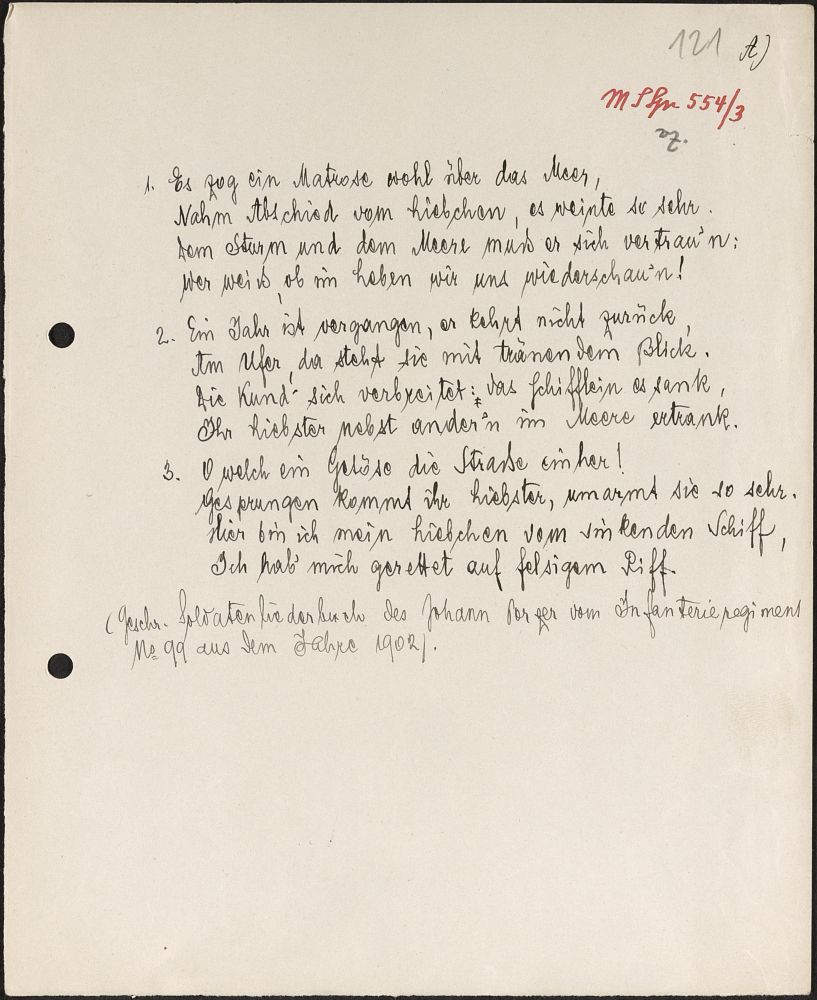 121 A)
554/3
1. Es zog ein Matrose wohl über das Meer,
Nahm Abschied vom Liebchen, es weinte so sehr.
Dem Sturm und dem Meere muß er sich vertrau'n:
Wer weiß, ob im Leben wir uns wiederschau'n!
2. Ein Jahr ist vergangen, er kehrt nicht zurück,
Am Ufer, da steht sie mit tränendem Blick.
Die Kund' sich verbreitet: das Schifflein es sank,
Ihr Liebster nebst ander'n im Meere ertrank.
3. O welch ein Getöse die Straße einher!
Gesprungen kommt ihr Liebster, umarmt sie so sehr.
Hier bin ich mein Liebchen vom sinkenden Schiff,
Ich hab' mich gerettet auf felsigem Riff.
(Geschr. Soldatenliederbuch des Johann vom Infanterieregiment
No 99 aus dem Jahre 1902).